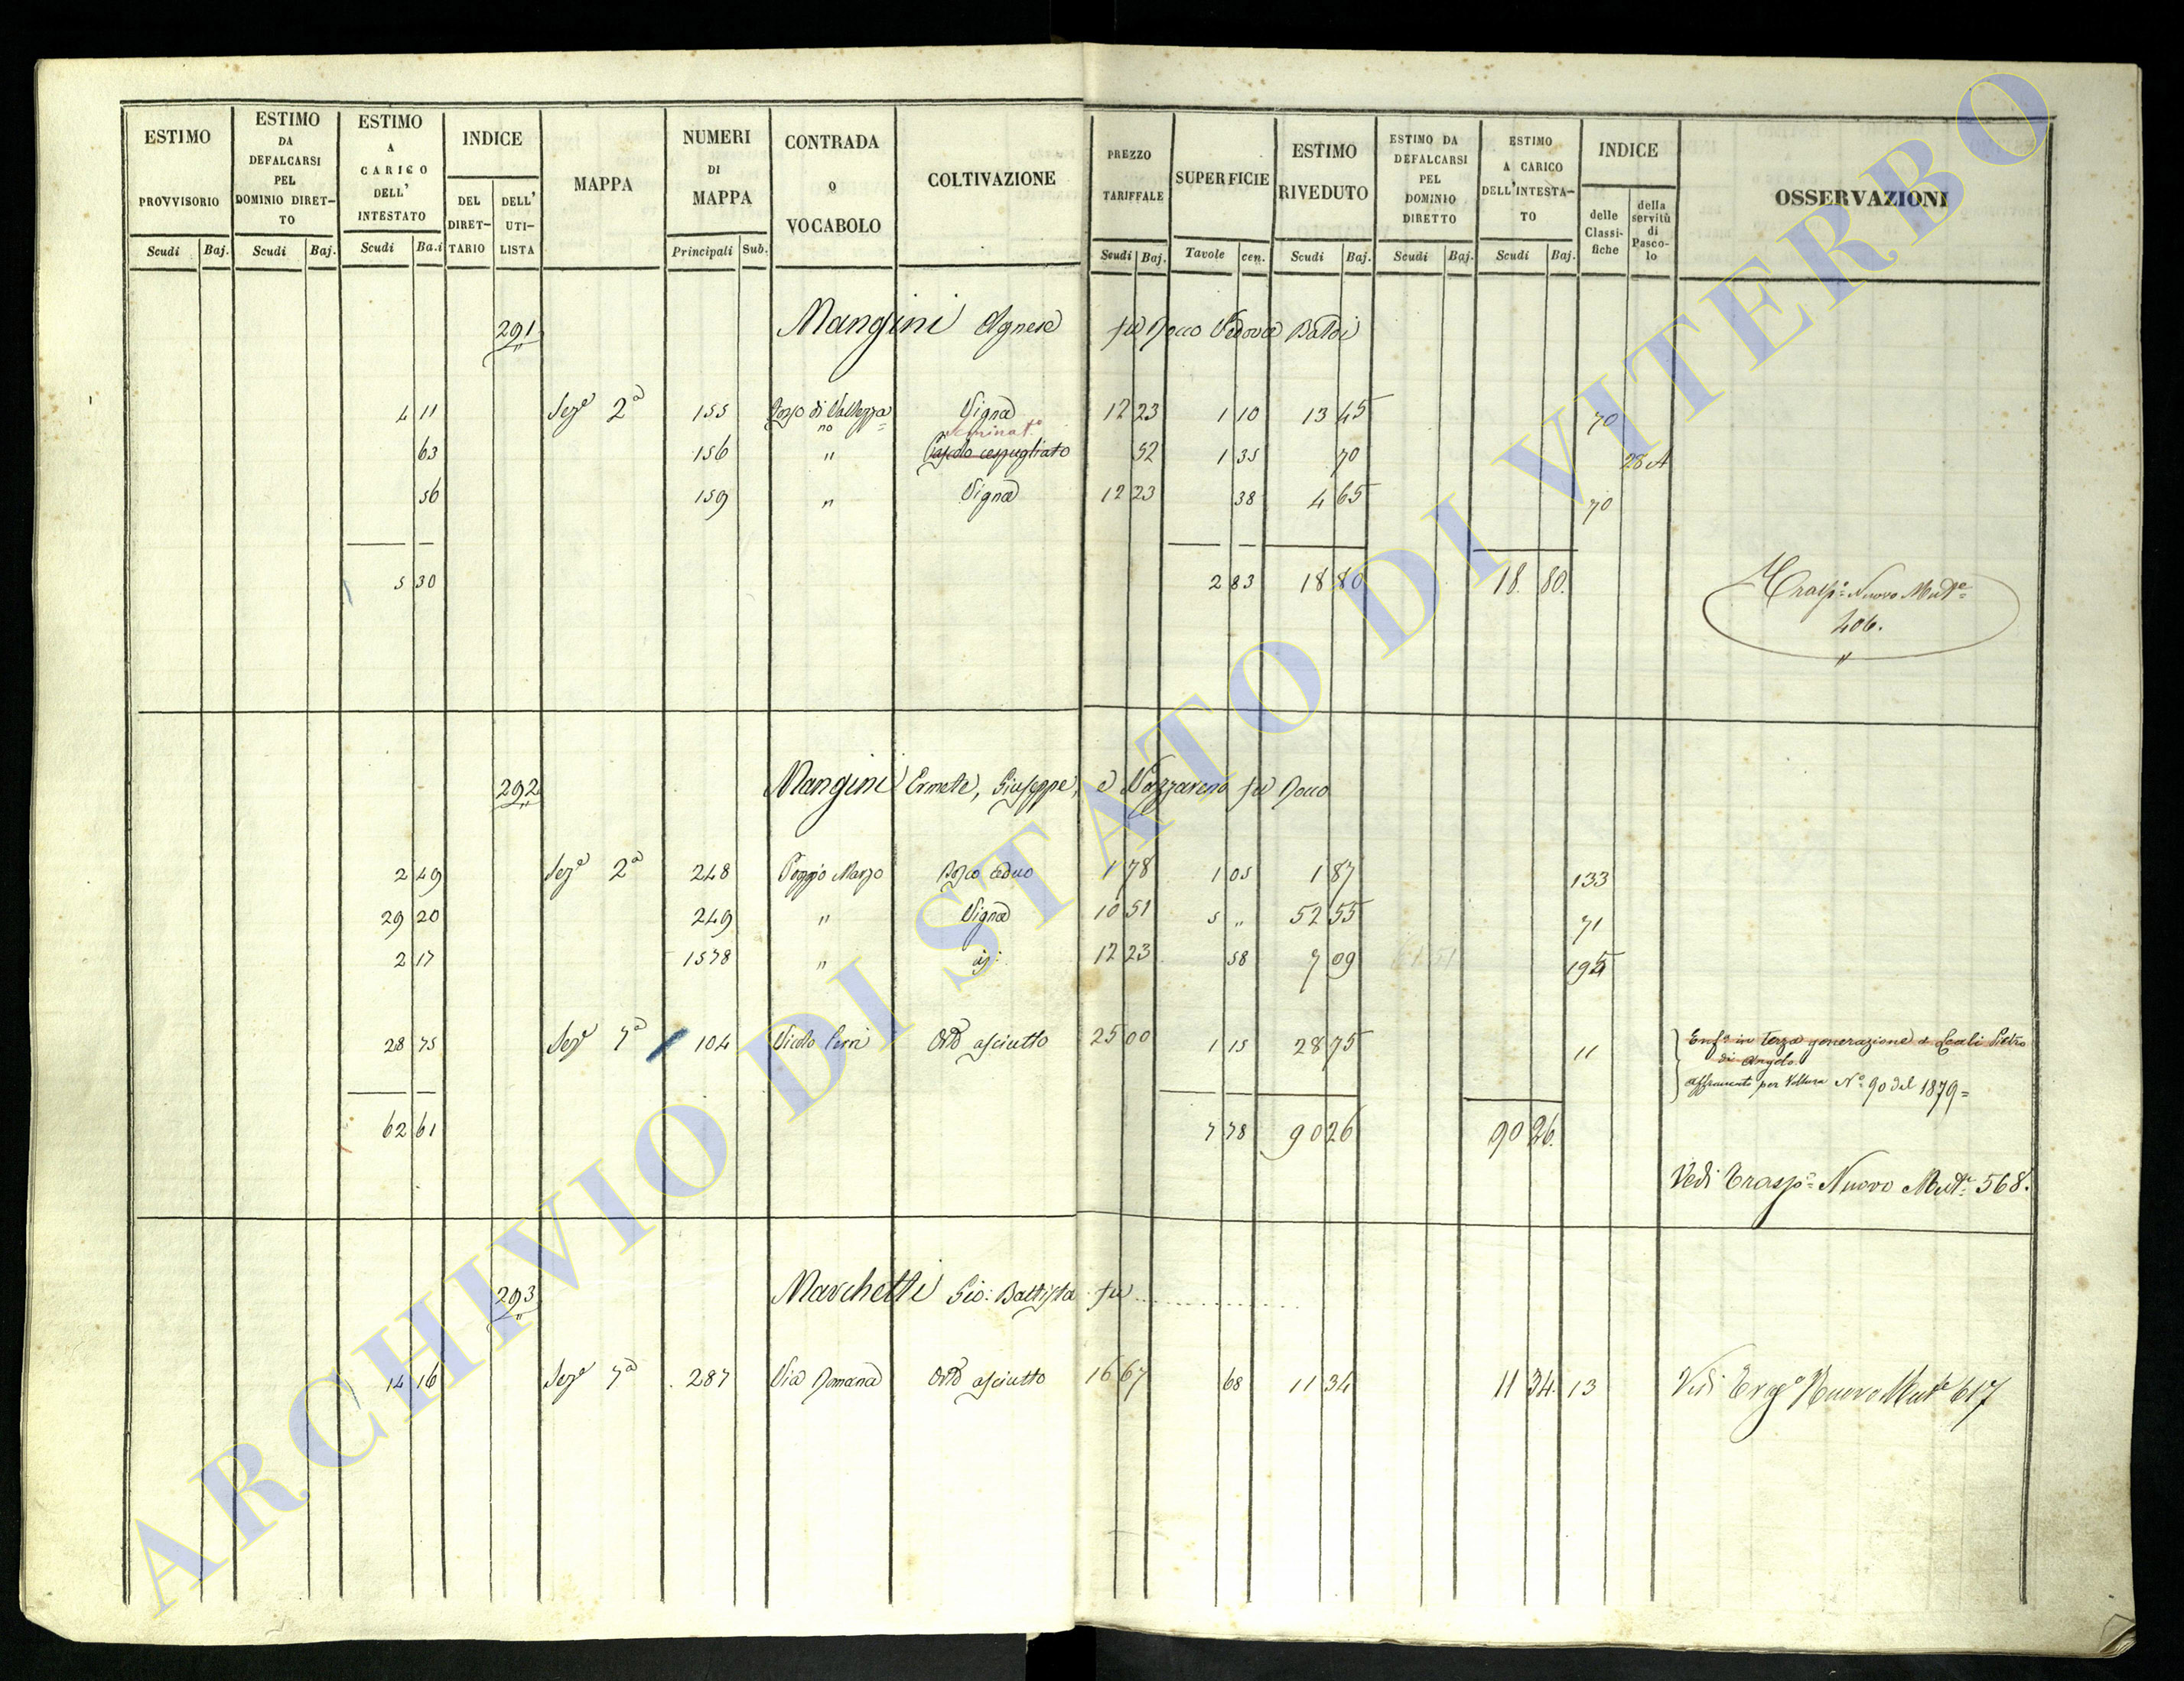 ESTIMO PROVVISORIO Scudi Baj.
ESTIMO DA DEFALCARSI PEL DOMINIO DIRET-TO Scudi Baj.
ESTIMO A CARICO DELL' INTESTATO Scudi Ba.i
INDICE DEL DIRET-TARIO DELL' UTI-LISTA
MAPPA
NUMERI DI MAPPA Principali Sub.
CONTRADA o VOCABOLO
COLTIVAZIONE
PREZZO TARIFFALE Scudi Baj.
SUPERFICIE Tavole cen.
ESTIMO RIVEDUTO Scudi Baj.
ESTIMO DA DEFALCARSI PEL DOMINIO DIRETTO Scudi Baj.
ESTIMO A CARICO DELL'INTESTA-TO Scudi Baj.
INDICE delle Classi-fiche della servitù di Pasco-lo
OSSERVAZIONI
291 Mangini Agnese fu Rocco Vedova Baldi
4 11 Sez.e 2a 155 Vigna 12 23 1 10 13 45 70
63 156 " Seminat.o Pascolo cespugliato 52 1 35 70 28 A
56 159 " Vigna 12 23 38 4 65 70
5 30 2 83 18 80 18. 80.
Trasp.o Nuovo Mut.e
406.
292 Mangini Ermete, Giuseppe, e Nazzareno fu Rocco
2 49 Sez.e 2a 248 Poggio Marzo Bosco ceduo 1 78 1 05 1 87 133
29 20 249 " Vigna 10 51 5 " 52 55 71
2 17 1578 " 12 23 58 7 09
28 75 Sez.e 7a 104 Vicolo Orto asciutto 25 00 1 15 28 75 11
Enf.a in terza generazione a Leali Pietro
di Angelo
Affrancato per Voltura N.o 90 del 1879=
62 61 7 78 90 26 90 26.
Vedi Trasp.o Nuovo Mut.e 568.
293 Marchetti Gio: Battista fu ..............
14 16 Sez.e 7a 287 Via Romana Orto asciutto 16 67 68 11 34 11 34. 13 Vedi Nuovo Mut.e 617
ARCHIVIO DI STATO DI VITERBO